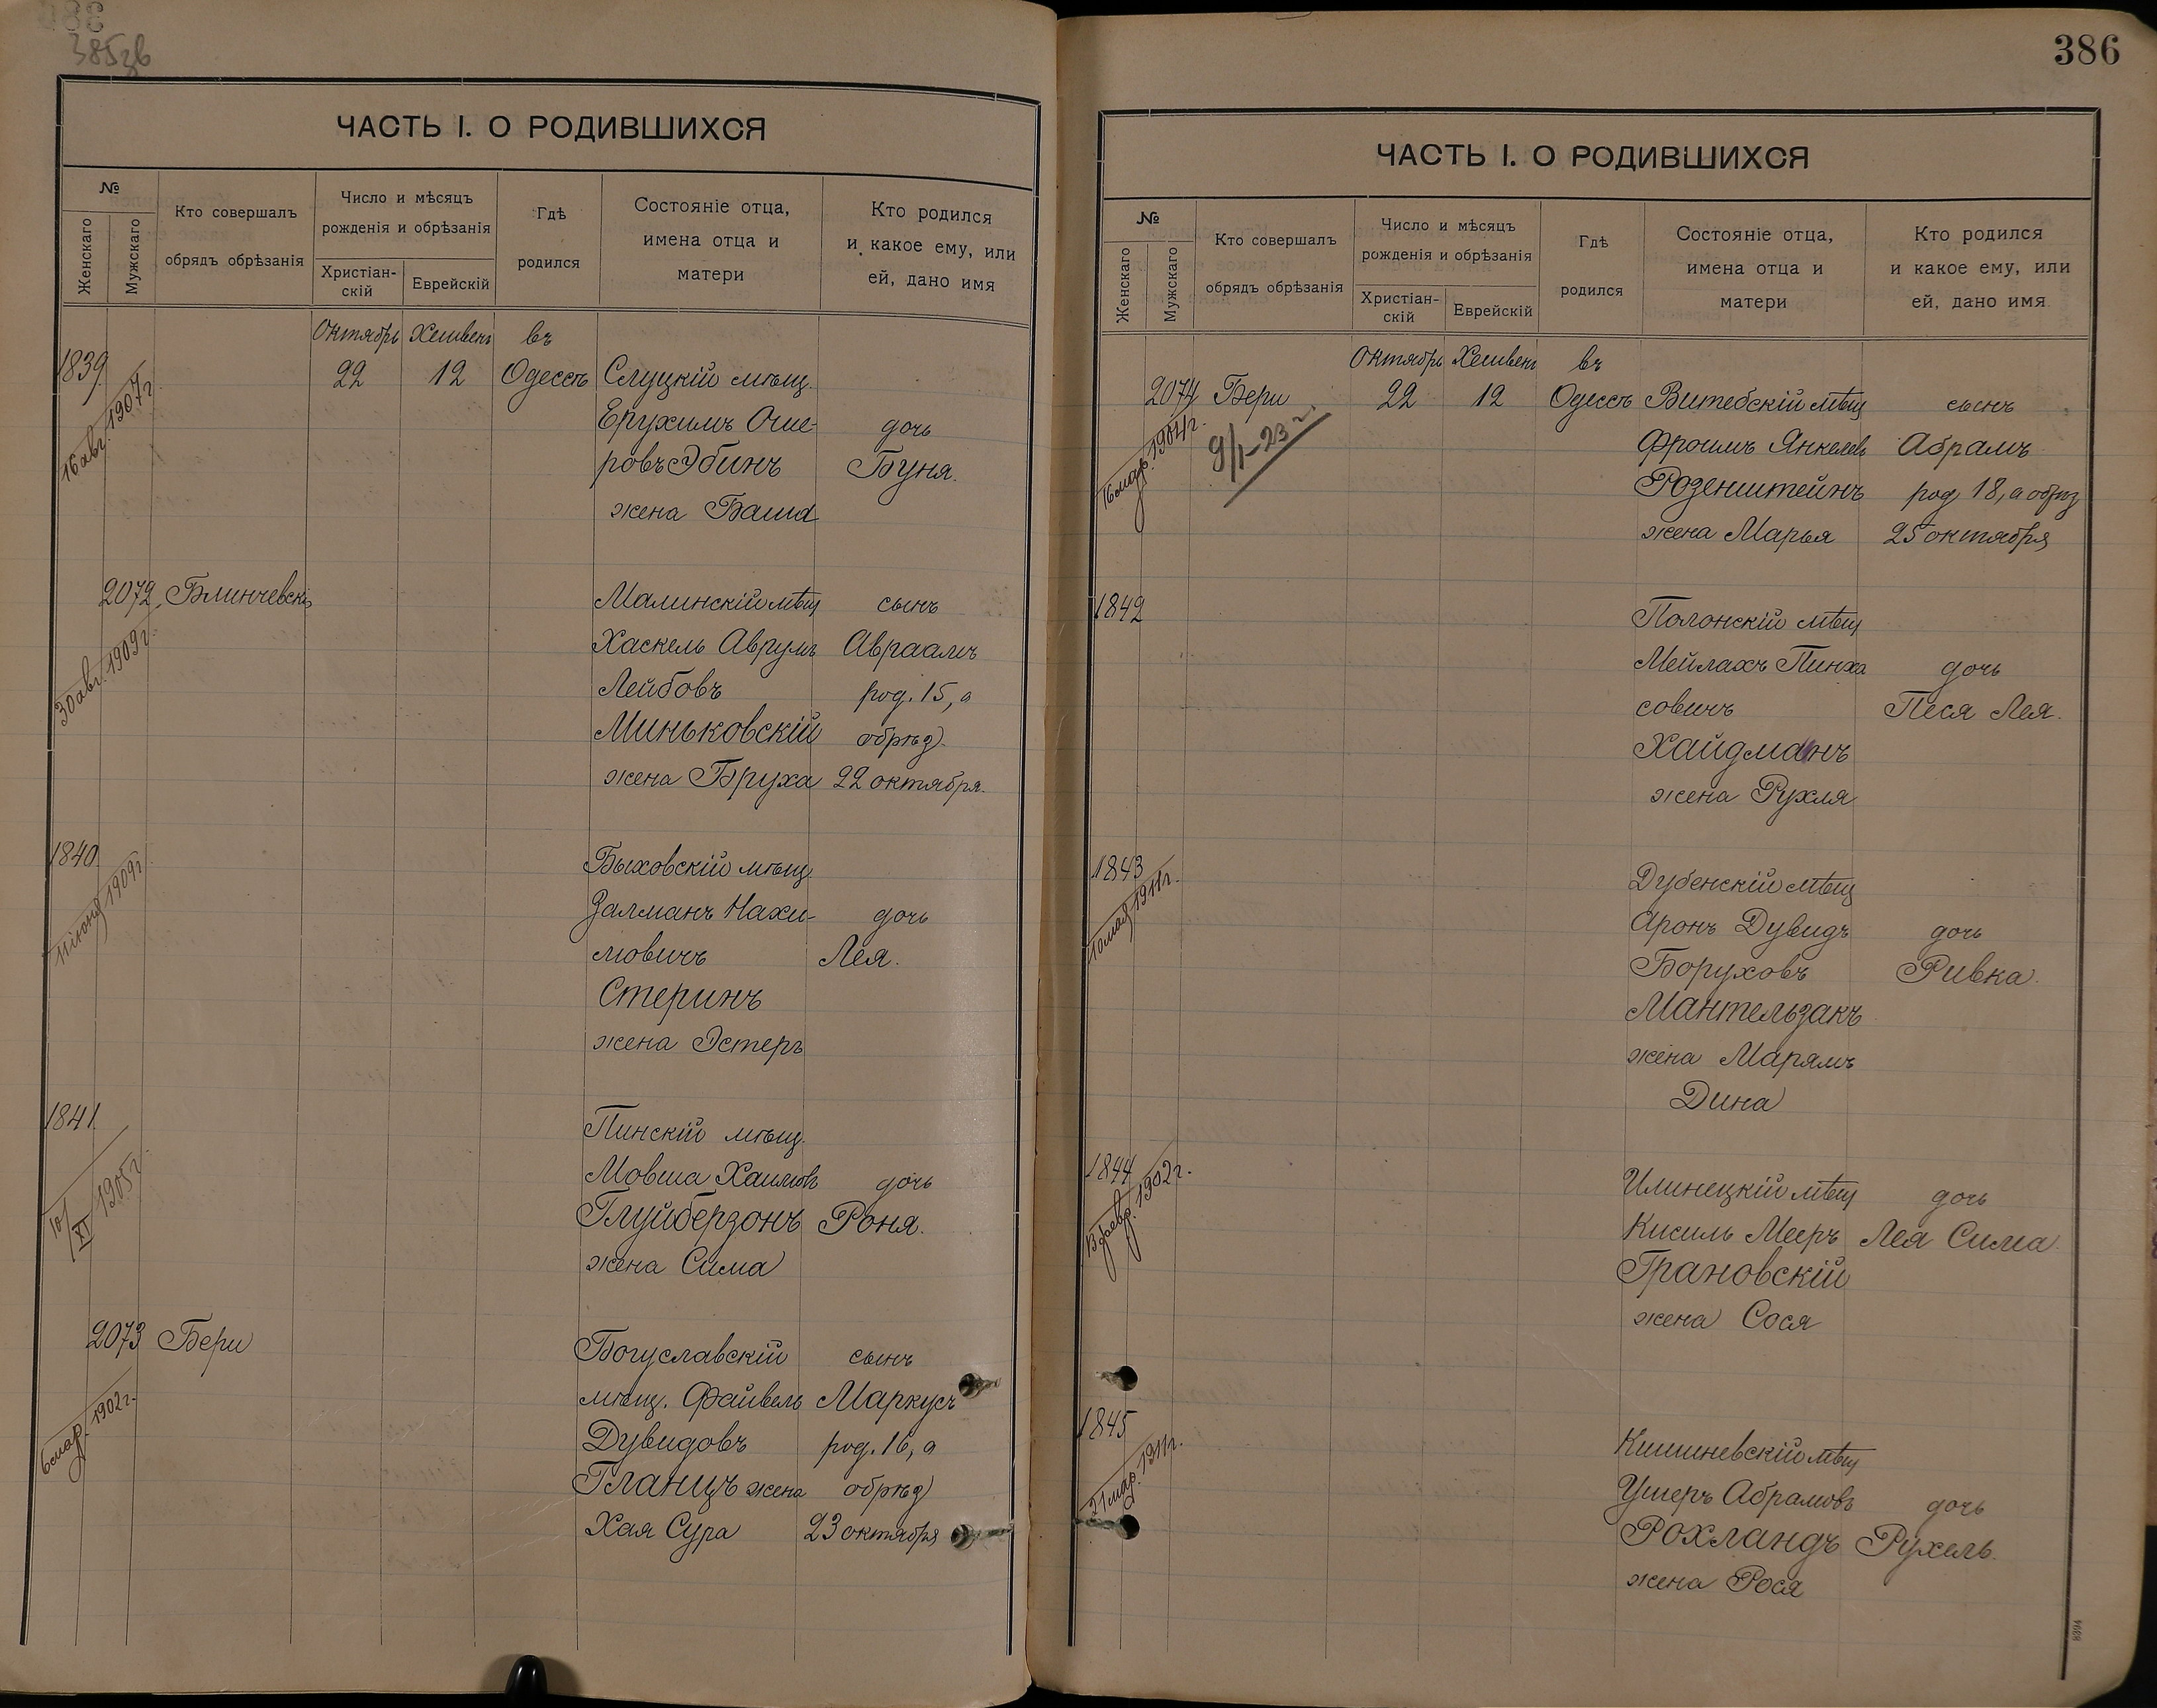 385зв
ЧАСТЬ I. О РОДИВШИХСЯ
№
Женскаго
Мужскаго
Кто совершалъ
обрядъ обрѣзанія
Число и мѣсяцъ
рожденія и обрѣзанія
Христіан-
скій
Еврейскій
Гдѣ
родился
Состояніе отца,
имена отца и
матери
Кто родился
и какое ему, или
ей, дано имя
Октябрь Хешвенъ въ
1839 22 12 Одессѣ Слуцкій мѣщ.
16 авг. 1907 г.
Ерухимъ Оше- дочь
ровъ Эбинъ Буня.
жена Баша
2072 Блинчевскі Малинскій мѣщ сынъ
30 авг. 1909 г.
Хаскель Аврумъ Авраамъ
Лейбовъ род. 15, а
Миньковскій обрѣз.
жена Бруха 22 октября.
1840 Быховскій мѣщ.
11 іюня 1909 г
Залманъ Нахи- дочь
мовичъ Лея.
Стеринъ
жена Эстеръ
1841 Пинскій мѣщ.
10/XI 1905 г.
Мовша Хаимовъ дочь
Глуйберзонъ Роня.
жена Сима
2073 Бери Богуславскій сынъ
6 мар. 1902 г.
мѣщ. Файвель Маркусъ
Дувидовъ род. 16, а
Гланцъ жена обрѣз
Хая Сура 23 октября
386
ЧАСТЬ I. О РОДИВШИХСЯ
№
Женскаго
Мужскаго
Кто совершалъ
обрядъ обрѣзанія
Число и мѣсяцъ
рожденія и обрѣзанія
Христіан-
скій
Еврейскій
Гдѣ
родился
Состояніе отца,
имена отца и
матери
Кто родился
и какое ему, или
ей, дано имя
Октябрь Хешвенъ въ
2074 Бери 22 12 Одессѣ Витебскій мѣщ сынъ
16 мар. 1904 г.
9/I-23 г
Фроимъ Янкелев Абрамъ
Розенштейнъ род 18, а обрѣз
жена Марья 25 октября
1842 Полонскій мѣщ
Мейлахъ Пинха дочь
совичъ Песя Лея.
Хайдманъ
жена Рухля
1843 Дубенскій мѣщ
10 мая 1911 г.
Аронъ Дувидъ дочь
Боруховъ Ривка.
Мантельзакъ
жена Марямъ
Дина
1844 Илинецкій мѣщ дочь
13 февр. 1902 г.
Кисиль Мееръ Лея Сима.
Грановскій
жена Сося
1845 Кишиневскій мѣщ
21 мар. 1911 г.
Ушеръ Абрамовъ дочь
Рохландъ Рухель.
жена Рося